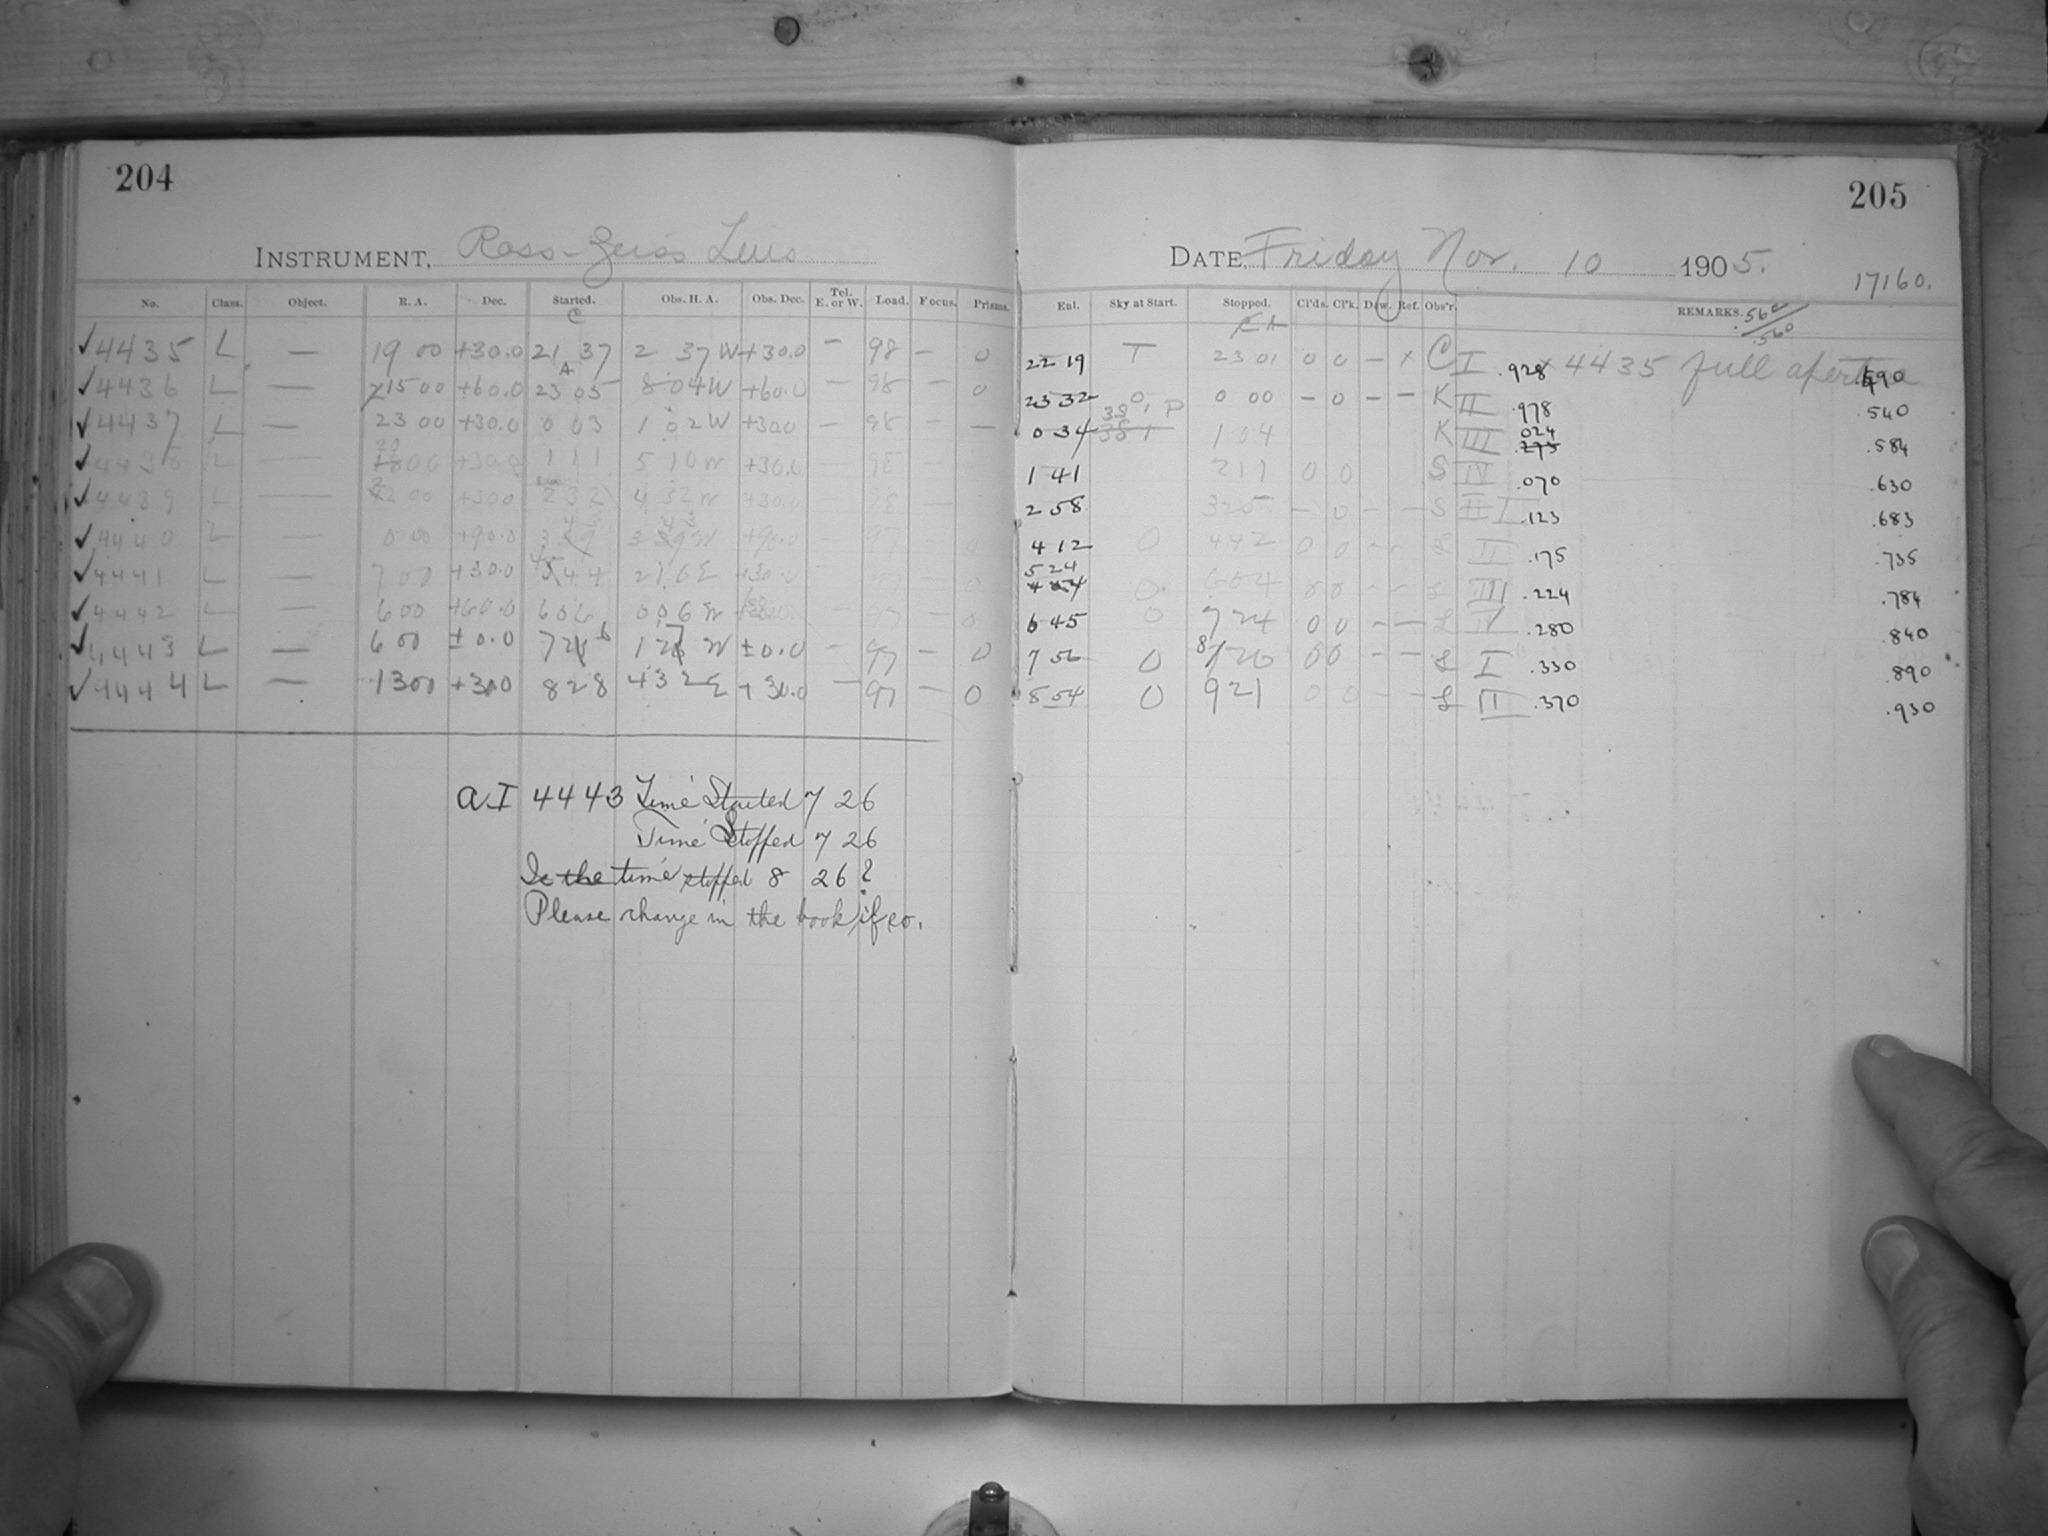 204
205
INSTRUMENT, Ross-Zeiss Lens
DATE, Friday Nov. 10 1905.
17160.
No. Class. Object. R. A. Dec. Started. Obs. H. A. Obs. Dec. Tel. E. or W. Load. Focus. Prisms. Enl. Sky at Start. Stopped. Cl'ds. Cl'k. Dew. Ref. Obs'r. REMARKS. .560
.560
C
✓4435 L — 19 00 +30.0 21 37 2 37 W +30.0 — 98 — 0 22 19 T 23 01 0 0 — x C I .928 x 4435 full aperture .490
A
✓4436 L — 15 00 +60.0 23 05 8 04 W +60.0 — 98 — 0 23 32 0 0 00 — 0 — — K II .978 .540
✓4437 L — 23 00 +30.0 0 03 1 02 W +30.0 — 98 — — 0 34 38 1 P 1 04 K III .024 .584
✓4438 L — 20 00 +30.0 1 11 5 10 W +30.0 98 — 1 41 2 11 0 0 S IV .070 .630
✓4439 L — 22 00 +30.0 2 32 4 32 W +30.0 98 — 2 58 3 25 — 0 — — S I .123 .683
✓4440 L — 0 00 +90.0 +90.0 — 97 0 4 12 0 4 42 0 0 — — L II .175 .735
✓4441 L — 7 00 +30.0 4 54 2 16 E +30.0 97 0 5 24 0 6 04 0 0 — — L III .224 .784
✓4442 L — 6 00 +60.0 6 06 0 06 W 97 0 6 45 0 7 24 0 0 — — L IV .280 .840
✓4443 L — 6 00 ±0.0 7 26 1 27 W ±0.0 — 97 0 7 56 0 8 26 0 0 — — L I .330 .890
✓4444 L — 13 00 +30.0 8 28 4 32 E +30.0 — 97 — 0 8 54 0 9 21 0 0 — — L II .370 .930
A I 4443 Time Started 7 26
Time Stopped 7 26
Is the time stopped 8 26?
Please change in the book if so.